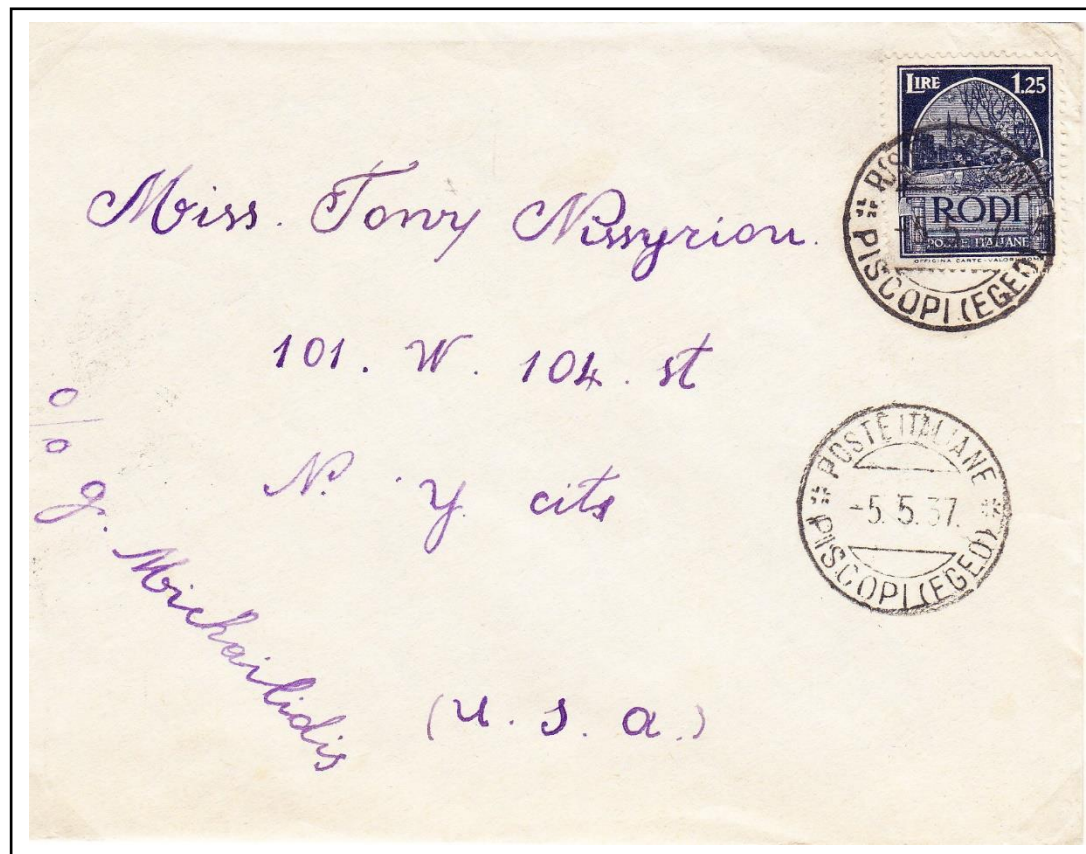 LIRE 1.25
RODI
POSTE ITALIANE
OFFICINA CARTE-VALORI
PISCOPI (EGEO)
Miss. Tony Nissyriou.
101. W. 104. st
N. Y. cits
(U. S. A.)
o/o g. Michailidis
POSTE ITALIANE
-5. 5. 37.
PISCOPI (EGEO)